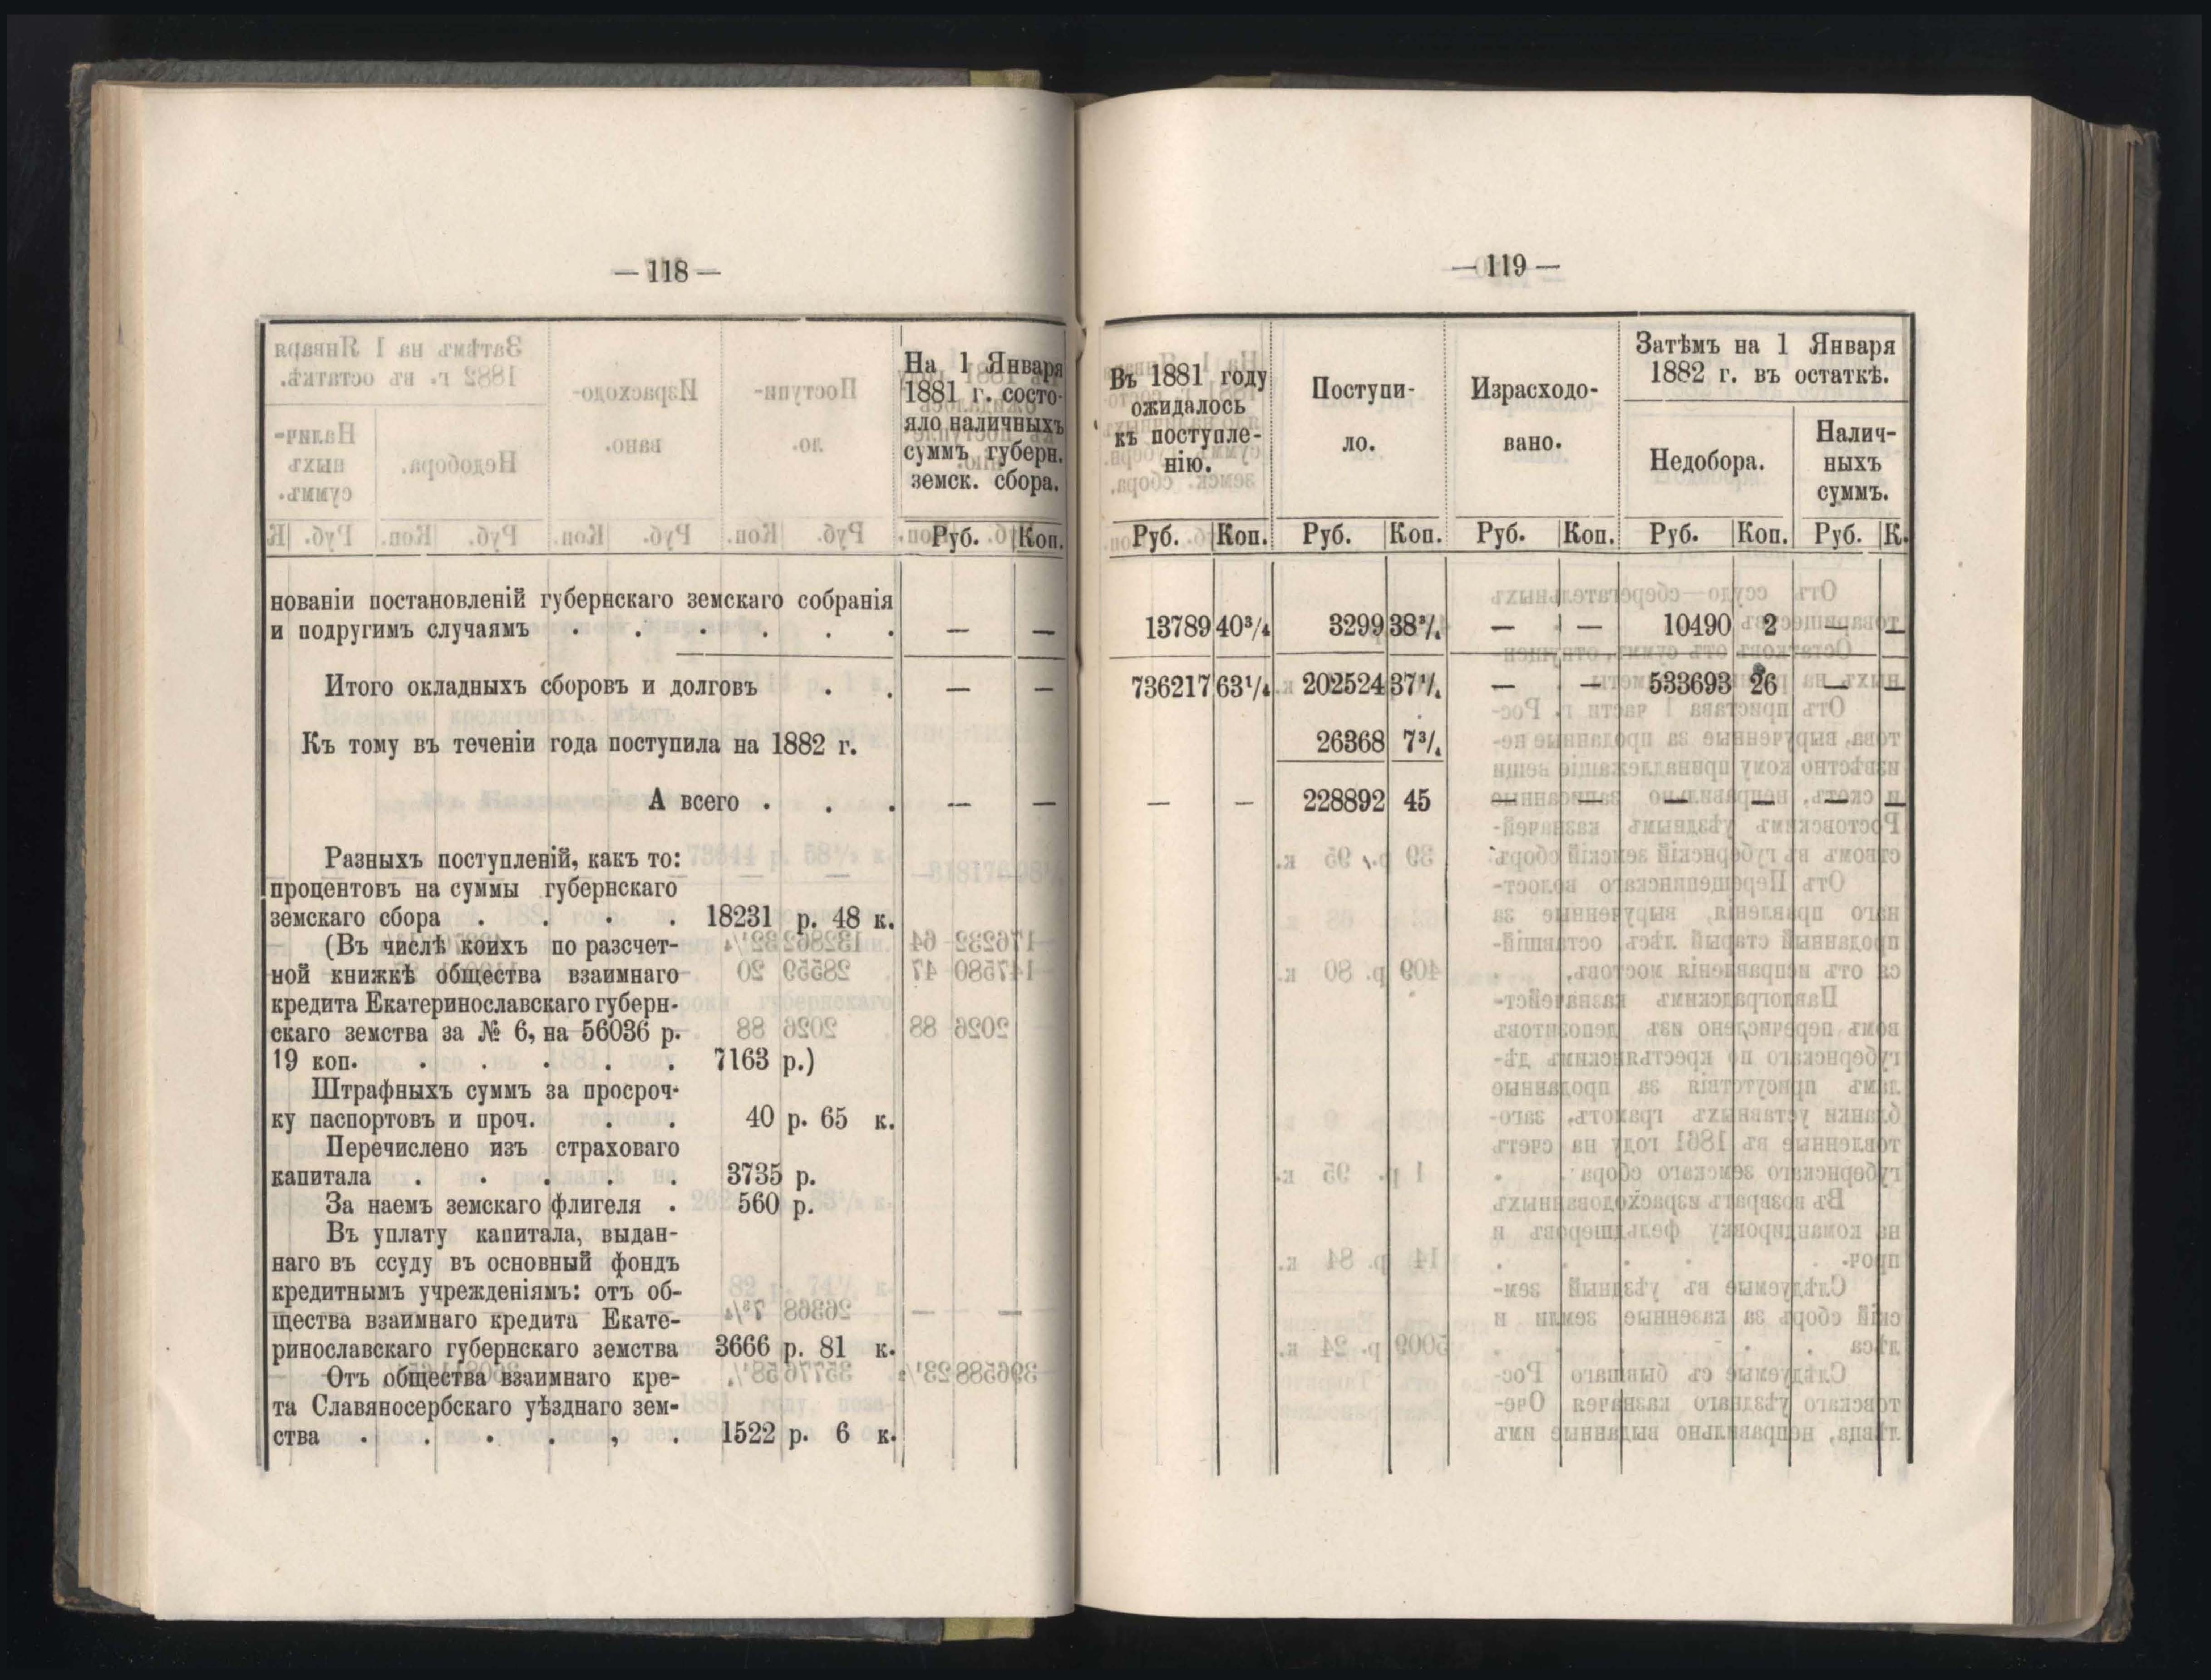 — 118 —
На 1 Января
1881 г. состо-
яло наличныхъ
суммъ губерн.
земск. сбора.
Руб. Коп.
нованіи постановленій губернскаго земскаго собранія
и подругимъ случаямъ . . . . . . — —
Итого окладныхъ сборовъ и долговъ . . — —
Къ тому въ теченіи года поступила на 1882 г.
А всего . . . — —
Разныхъ поступленій, какъ то:
процентовъ на суммы губернскаго
земскаго сбора . . . . 18231 р. 48 к.
(Въ числѣ коихъ по разсчет-
ной книжкѣ общества взаимнаго
кредита Екатеринославскаго губерн-
скаго земства за № 6, на 56036 р.
19 коп. . . . . . 7163 р.)
Штрафныхъ суммъ за просроч-
ку паспортовъ и проч. . . 40 р. 65 к.
Перечислено изъ страховаго
капитала . . . . . 3735 р.
За наемъ земскаго флигеля . 560 р.
Въ уплату капитала, выдан-
наго въ ссуду въ основный фондъ
кредитнымъ учрежденіямъ: отъ об-
щества взаимнаго кредита Екате-
ринославскаго губернскаго земства 3666 р. 81 к.
Отъ общества взаимнаго кре-
та Славяносербскаго уѣзднаго зем-
ства . . . . , . 1522 р. 6 к.
— 119 —
Въ 1881 году
ожидалось
къ поступле-
нію.
Поступи-
ло.
Израсходо-
вано.
Затѣмъ на 1 Января
1882 г. въ остаткѣ.
Недобора.
Налич-
ныхъ
суммъ.
Руб. Коп. Руб. Коп. Руб. Коп. Руб. Коп. Руб. К.
13789 40³/₄ 3299 38³/₄ — — 10490 2 — —
736217 63¹/₄ 202524 37¹/₄ — — 533693 26 — —
26368 7³/₄
— — 228892 45 — — — — — —